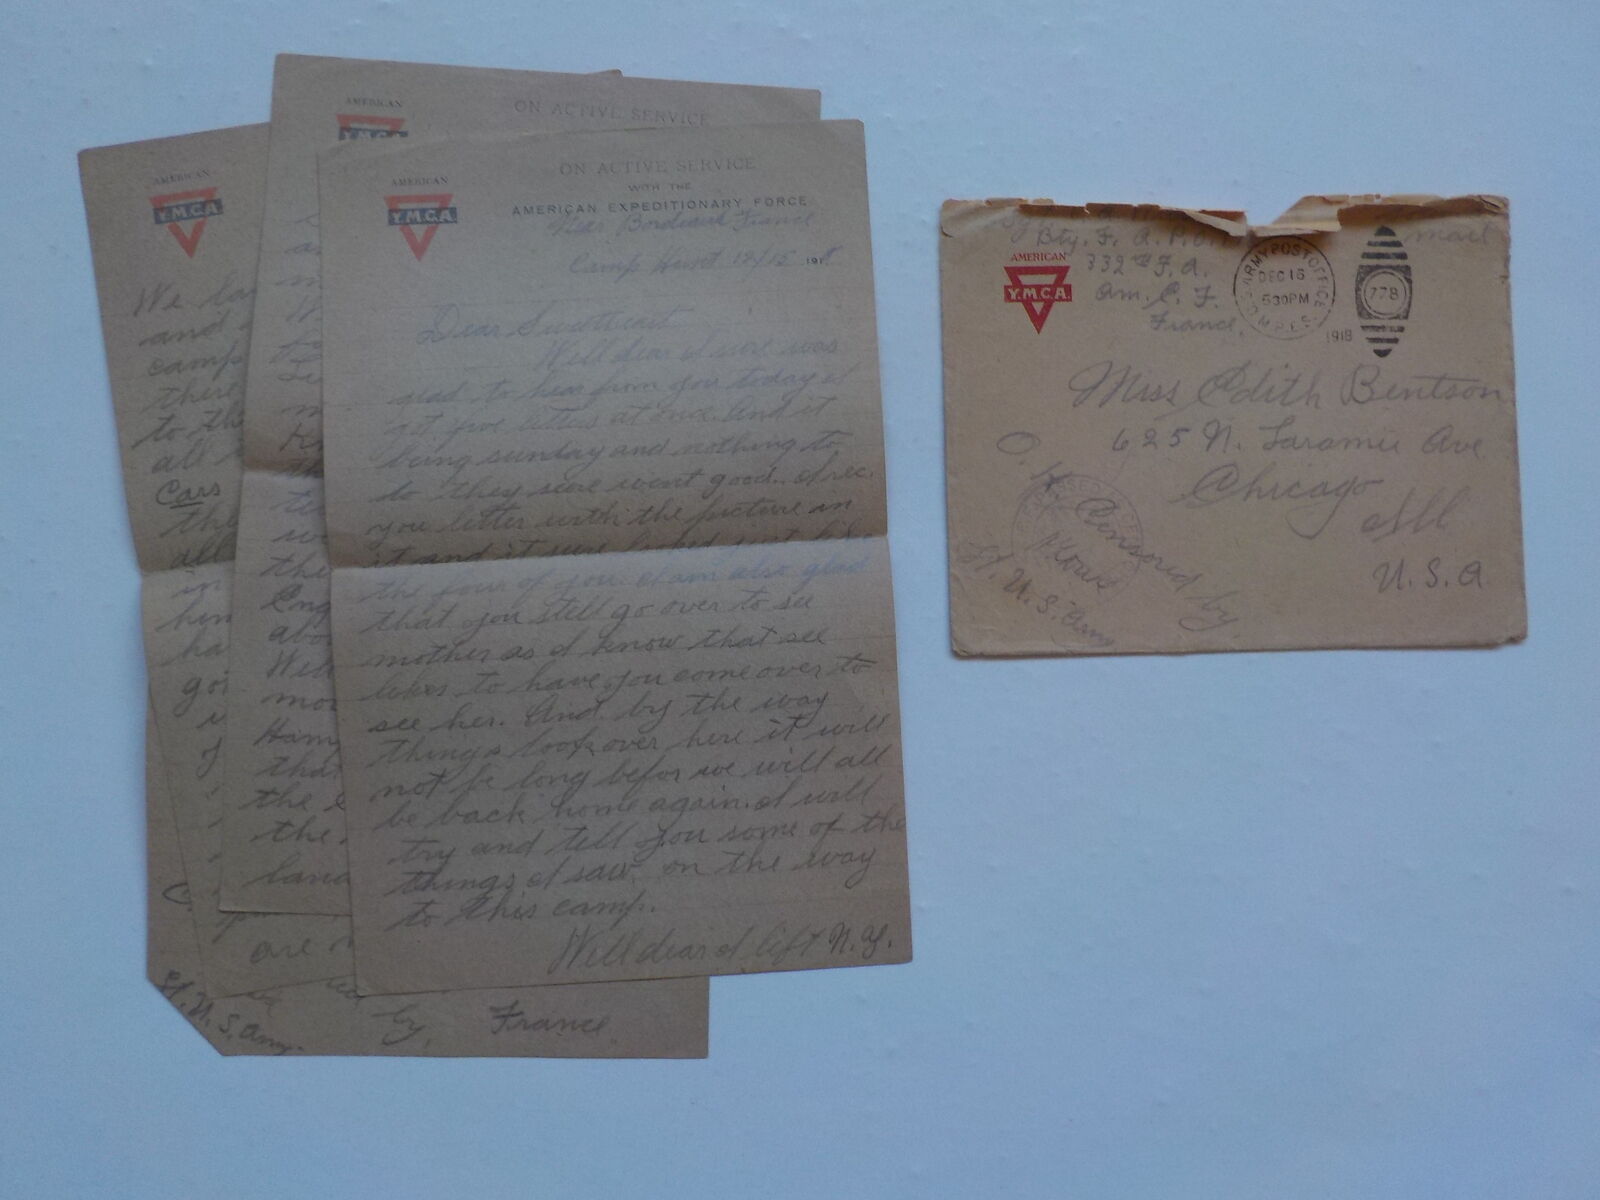 AMERICAN
Y.M.C.A.
We
and
camp
there
to the
all
Cars
the
all
in
him
ha
got
AMERICAN
Y.M.C.A.
ON ACTIVE SERVICE
the
Eng
abo
Well
mor
that
the
the
land
are
by, France
Lt. U.S. Army.
AMERICAN
Y.M.C.A.
ON ACTIVE SERVICE
WITH THE
AMERICAN EXPEDITIONARY FORCE
Near Bordeaux France
Camp Hunt 12/15 1918
Dear Sweetheart
Well dear I sure was
glad to hear from you today I
got five letters at once. And it
being sunday and nothing to
do they sure went good. I rec.
you letter with the picture in
it and it sure looked just like
the four of you. I am also glad
that you still go over to see
mother as I know that see
likes to have you come over to
see her. And by the way
things look over here it will
not be long befor we will all
be back home again. I will
try and tell you some of the
things I saw on the way
to this camp.
Well dear I left N.Y.
Bty. F. A.P.O.
332nd F.A.
Am. E. F.
France.
mail
AMERICAN
Y.M.C.A.
U.S. ARMY POST OFFICE
DEC 16
530PM
M.P.E.S.
1918
778
Miss Edith Bentson
625 N. Laramie Ave
Chicago
Ill
U.S.A
O.K. Censored by
Lt. U.S. Army